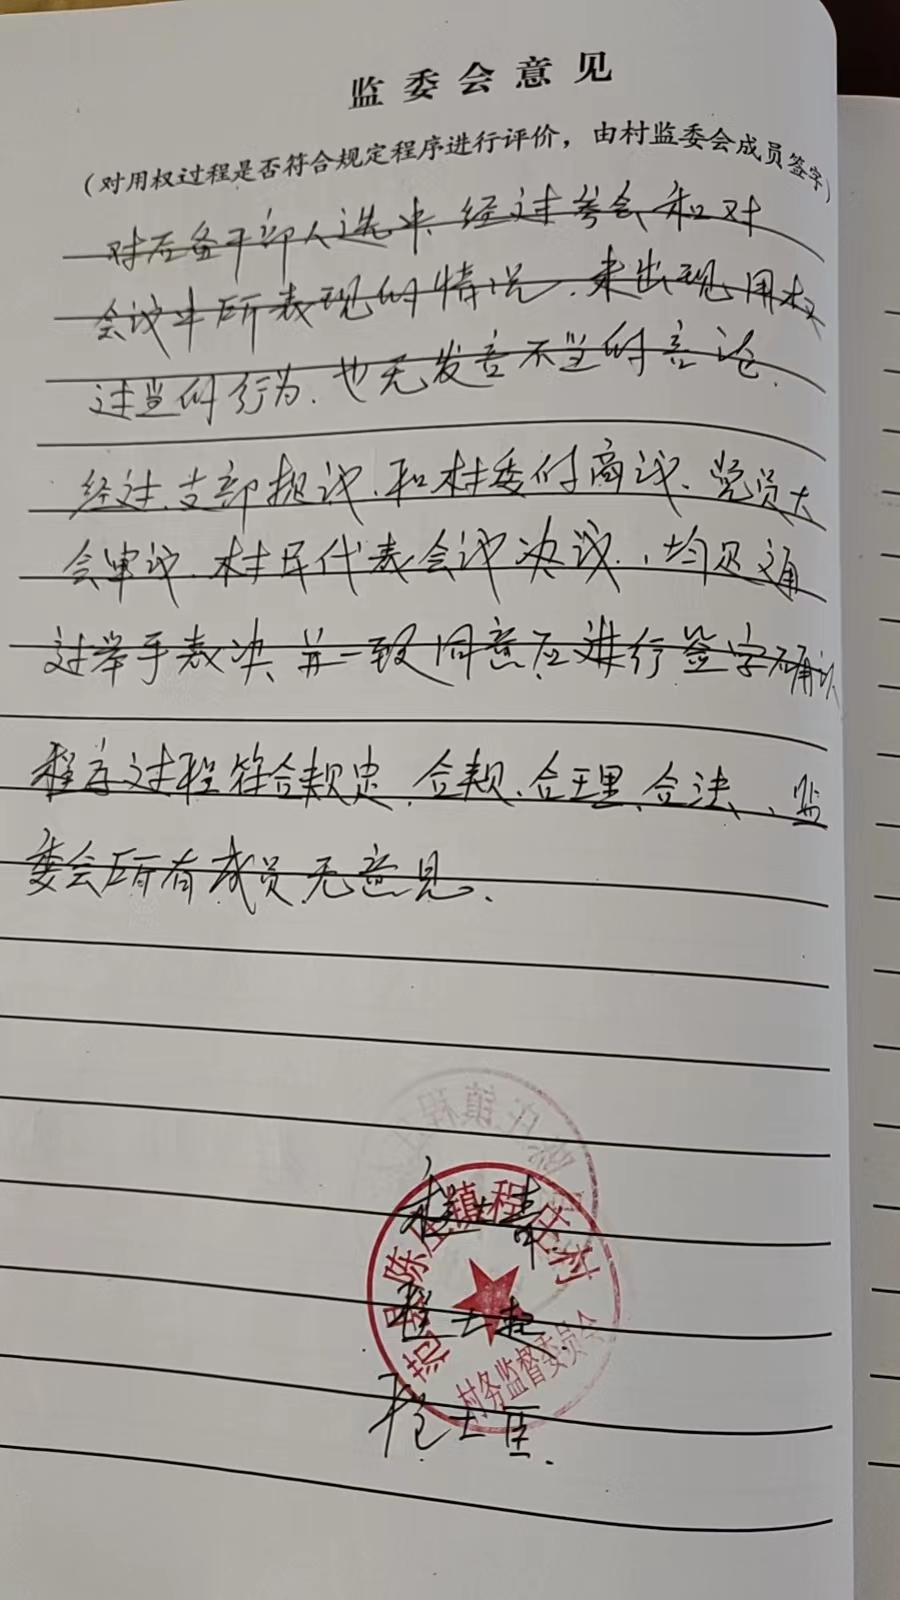 监委会意见
（对用权过程是否符合规定程序进行评价，由村监委会成员签字）
对后备干部人选中、经过参会和对
会议中所表现的情况、未出现用权
过当的行为、也无发言不当的言论.
经过支部提议、和村委付商议、党员大
会审议、村民代表会议决议、均是通
过举手表决、并一致同意应进行签字确认
程序过程符合规定、合规、合理、合法、监
委会所有成员无意见.
范县陈庄镇程庄村
村务监督委员会
程士臣.